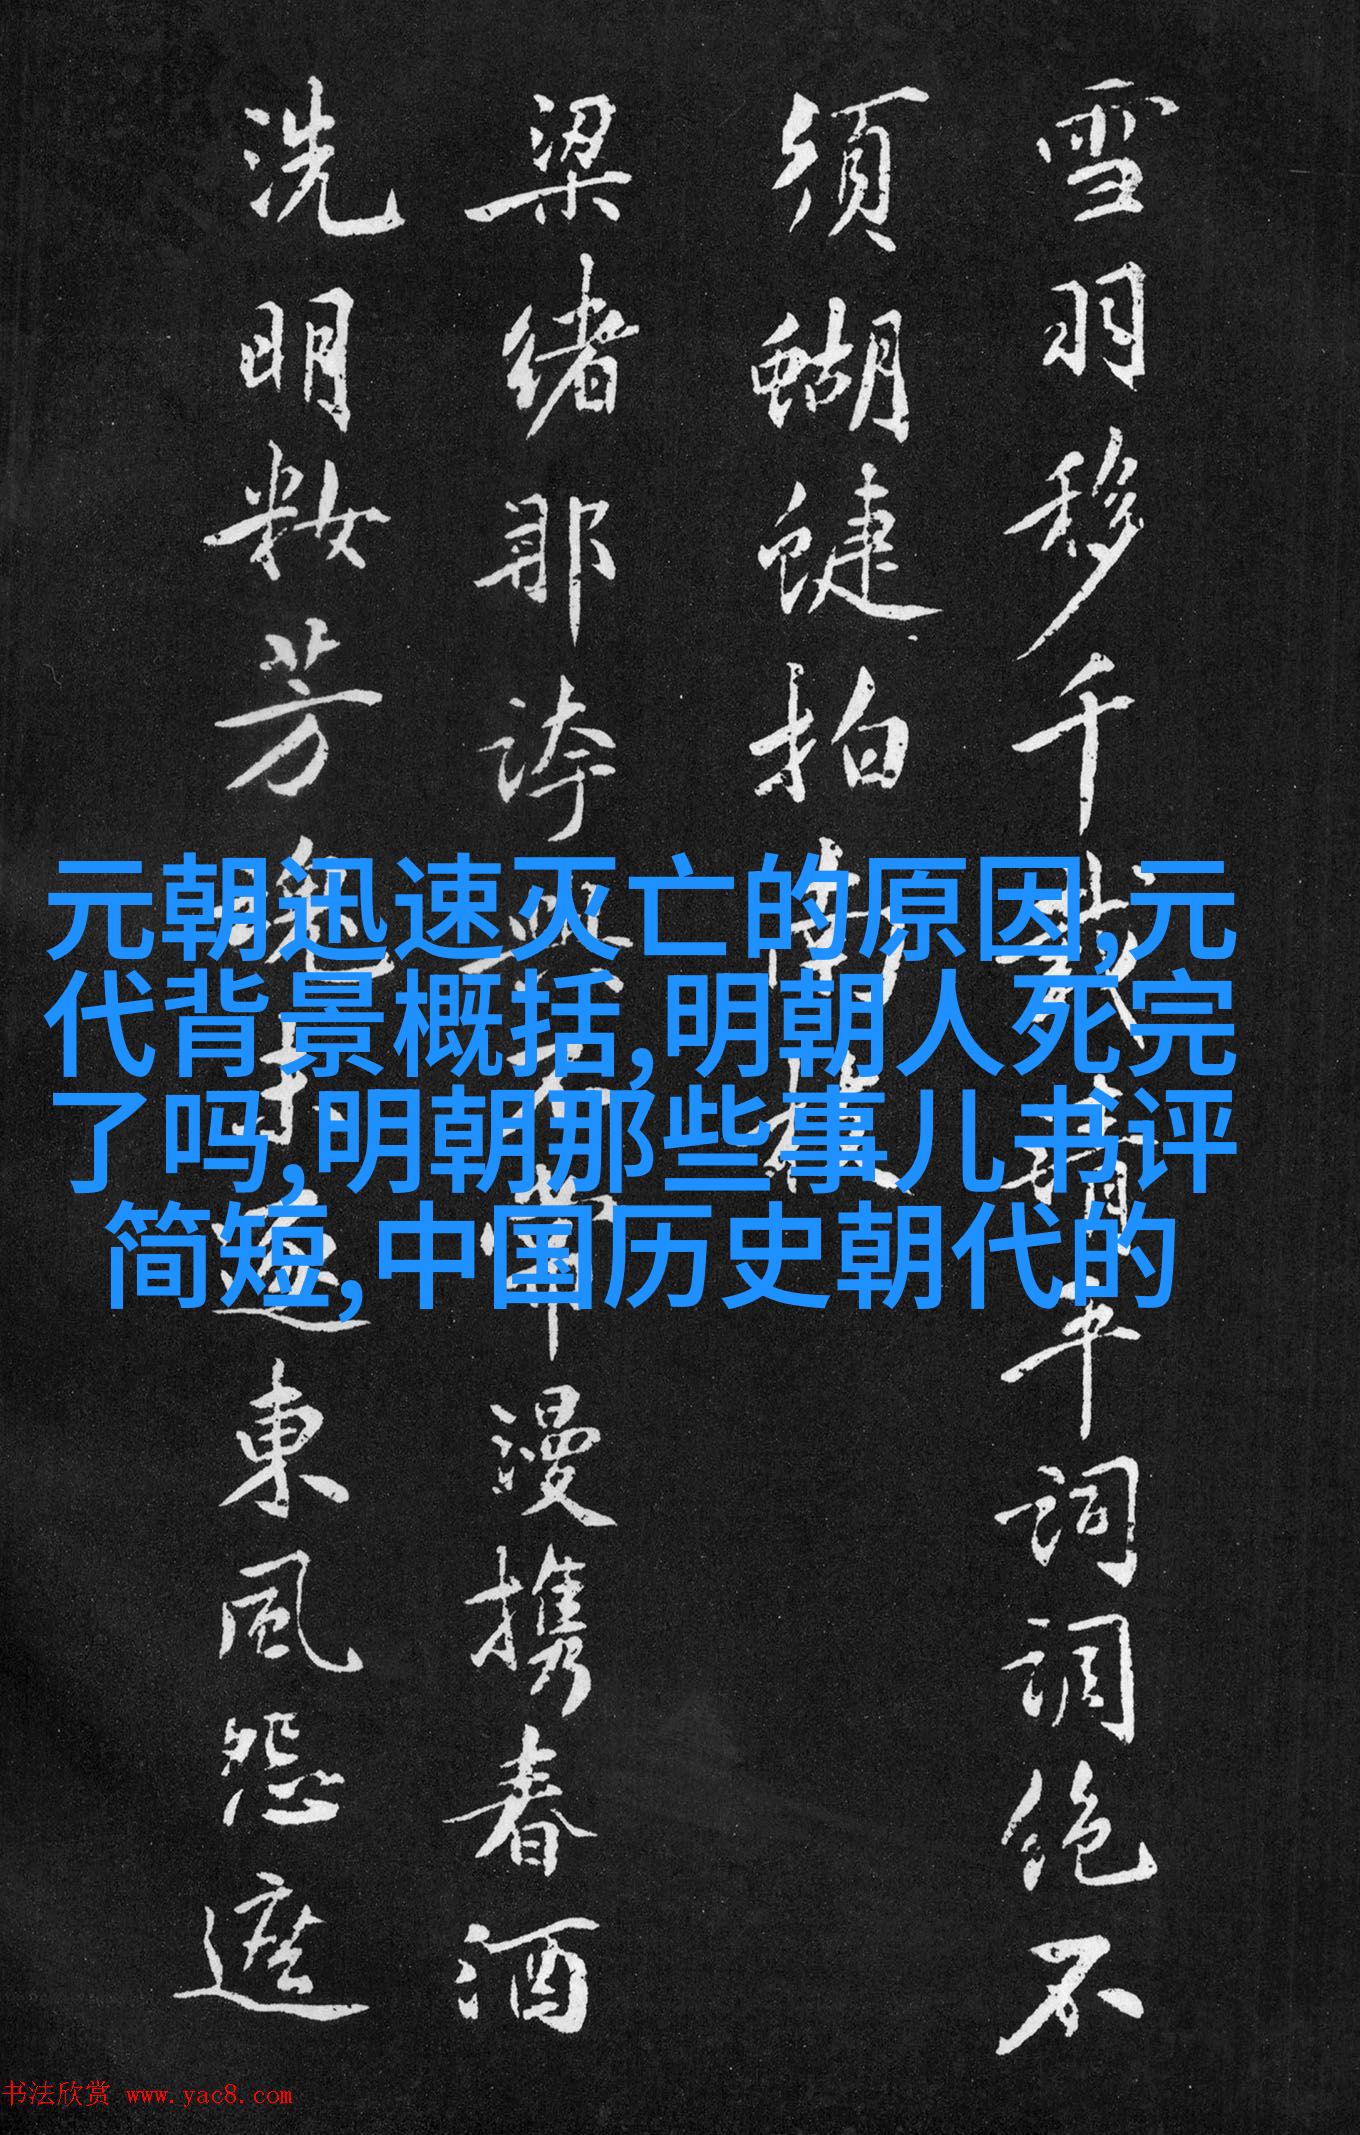 雪羽移千載清平詞調絕不
須蝴蝶拍
梁緒那誇漫携春酒
洗明粧芳魂東風怨遮
元朝迅速灭亡的原因,元
代背景概括,明朝人死完
了吗,明朝那些事儿书评
简短,中国历史朝代的
书法欣赏 www.yac8.com